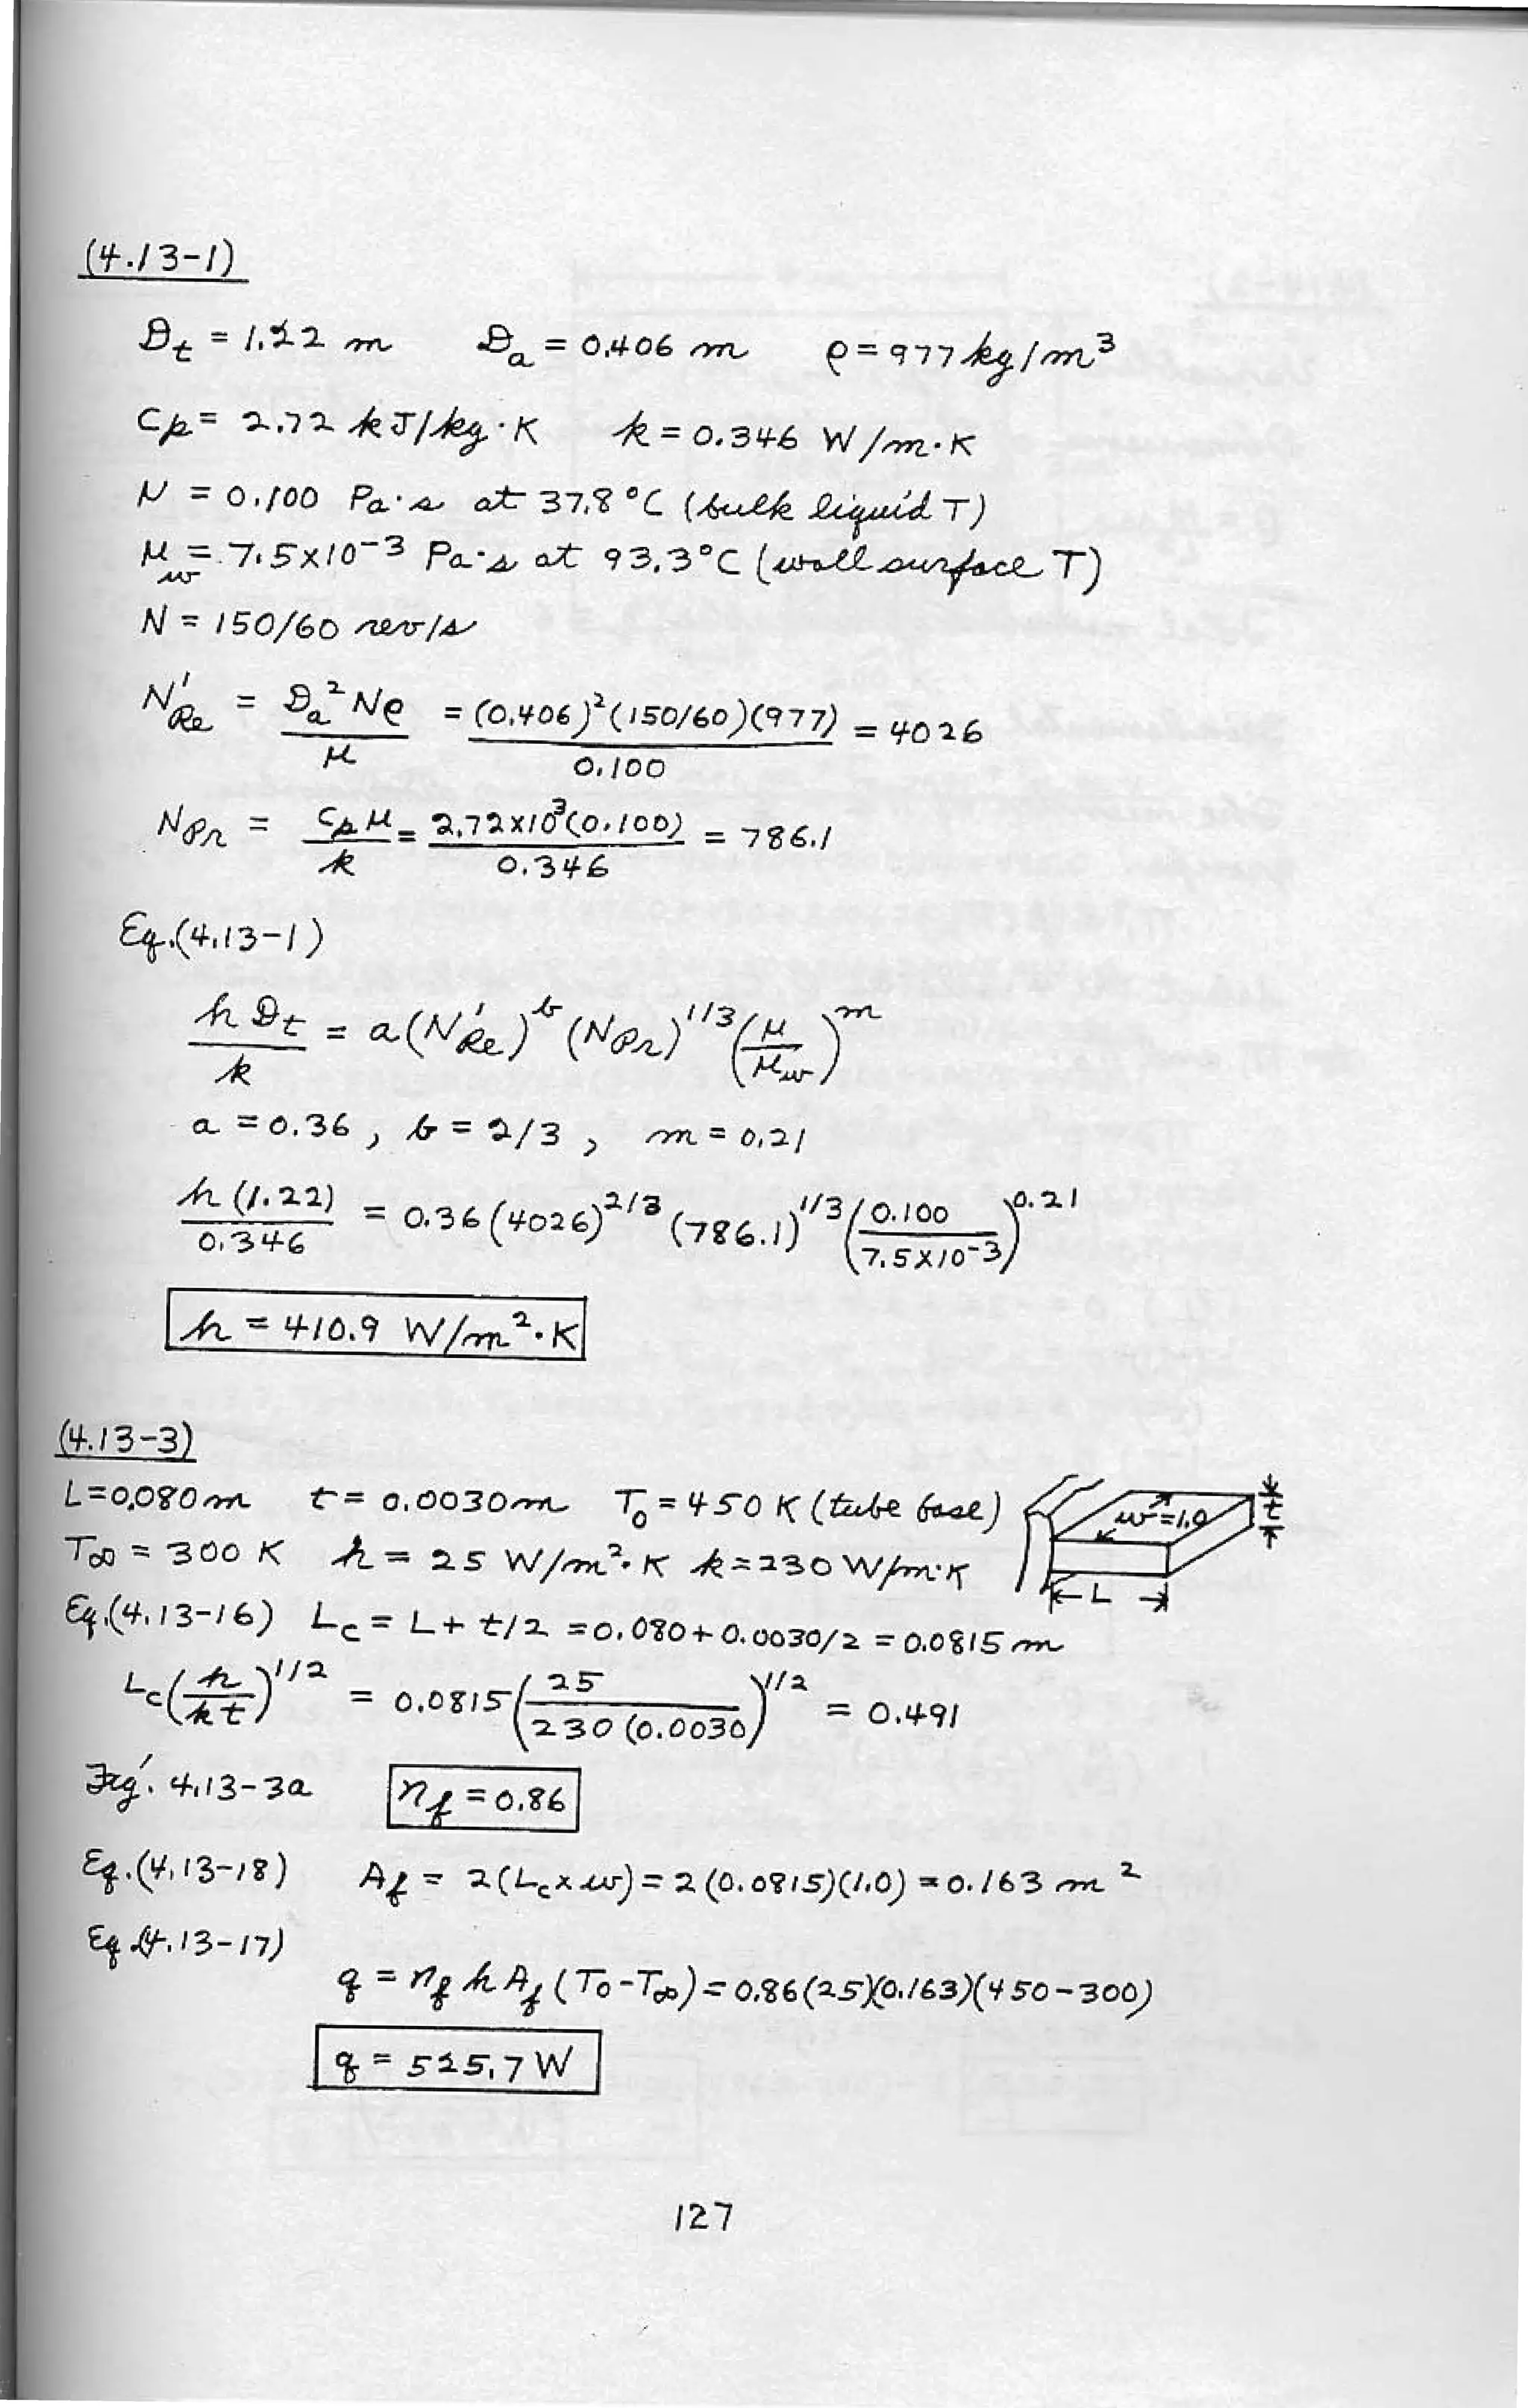 (4.13-1)
D_t = 1.22 m D_a = 0.406 m ρ = 977 kg/m³
c_p = 2.72 kJ/kg·K k = 0.346 W/m·K
μ = 0.100 Pa·s at 37.8 °C (bulk liquid T)
μ_w = 7.5×10⁻³ Pa·s at 93.3°C (wall surface T)
N = 150/60 rev/s
N'_Re = D_a² N ρ / μ = (0.406)²(150/60)(977) / 0.100 = 4026
N_Pr = c_p μ / k = 2.72×10³(0.100) / 0.346 = 786.1
Eq.(4.13-1)
h D_t / k = a(N'_Re)^b (N_Pr)^1/3 (μ / μ_w)^m
a = 0.36, b = 2/3, m = 0.21
h (1.22) / 0.346 = 0.36 (4026)^2/3 (786.1)^1/3 (0.100 / 7.5×10⁻³)^0.21
h = 410.9 W/m²·K
(4.13-3)
L=0.080 m t = 0.0030 m T_0 = 450 K (tube base)
w=1.0 t
T_∞ = 300 K h = 25 W/m²·K k=230 W/m·K
L
Eq.(4.13-16) L_c = L + t/2 = 0.080 + 0.0030/2 = 0.0815 m
L_c (h / kt)^1/2 = 0.0815 (25 / 230 (0.0030)^1/2 = 0.491
Fig. 4.13-3a n_f = 0.86
Eq.(4.13-18) A_f = 2(L_c × w) = 2 (0.0815)(1.0) = 0.163 m²
Eq.(4.13-17)
q = n_f h A_f (T_0 - T_∞) = 0.86(25)(0.163)(450-300)
q = 525.7 W
127